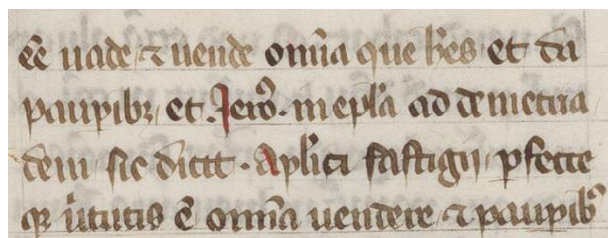 eẽ uade ⁊ uende om̃a que hẽs et da
paupibꝫ et Jero᷒. in epl̃a ad demetria
dem sic dicit. Apl̃ici fastigij ꝑfecte
qꝫ ũtutis ẽ om̃a uendere ⁊ paupibꝰ